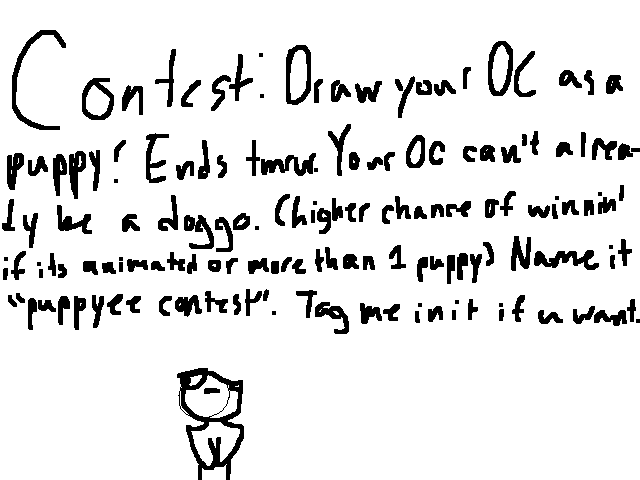 Contest: Draw your OC as a
puppy! Ends tmrw. Your OC can't alrea-
dy be a doggo. (higher chance of winnin'
if its animated or more than 1 puppy) Name it
"puppyee contest". Tag me in it if u want.